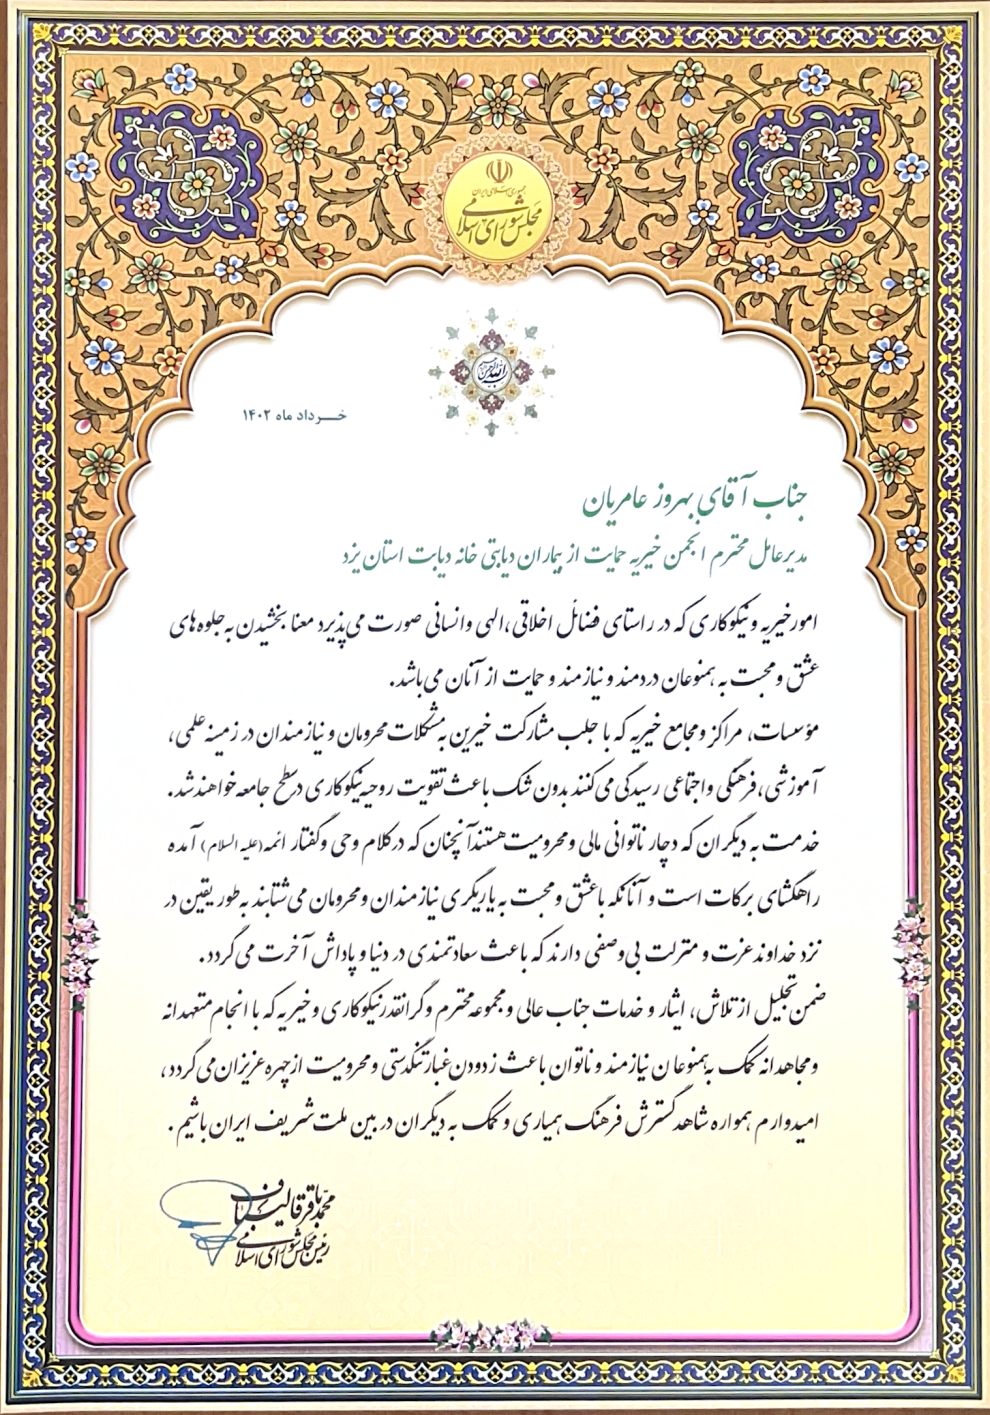 جمهوری اسلامی ایران
مجلس شورای اسلامی
بسم الله الرحمن الرحیم
خرداد ماه ۱۴۰۲
جناب آقای بهروز عامریان
مدیرعامل محترم انجمن خیریه حمایت از بیماران دیابتی خانه دیابت استان یزد
امورخیریه و نیکوکاری که در راستای فضائل اخلاقی، الهی وانسانی صورت می‌پذیرد معنا بخشیدن به جلوه‌های
عشق و محبت به همنوعان دردمند و نیازمند و حمایت از آنان می‌باشد.
مؤسسات، مراکز ومجامع خیریه که با جلب مشارکت خیرین به مشکلات محرومان و نیازمندان در زمینه علمی،
آموزشی، فرهنگی واجتماعی رسیدگی می‌کنند بدون شک باعث تقویت روحیه نیکوکاری درسطح جامعه خواهندشد.
خدمت به دیگران که دچار ناتوانی مالی ومحرومیت هستندآنچنان که درکلام وحی وگفتار ائمه(علیه السلام) آمده
راهگشای برکات است و آنانکه باعشق و محبت به یاریگری نیازمندان و محرومان می‌شتابند به‌طور یقین در
نزد خداوند عزت و منزلت بی‌وصفی دارند که باعث سعادتمندی در دنیا و پاداش آخرت می‌گردد.
ضمن تجلیل از تلاش، ایثار و خدمات جناب عالی و مجموعه محترم وگرانقدر نیکوکاری و خیریه که با انجام متعهدانه
ومجاهدانه کمک به همنوعان نیازمند و ناتوان باعث زدودن غبارتنگدستی و محرومیت ازچهره عزیزان می‌گردد،
امیدوارم همواره شاهد گسترش فرهنگ همیاری و کمک به دیگران در بین ملت شریف ایران باشیم.
محمدباقر قالیباف
رئیس مجلس شورای اسلامی